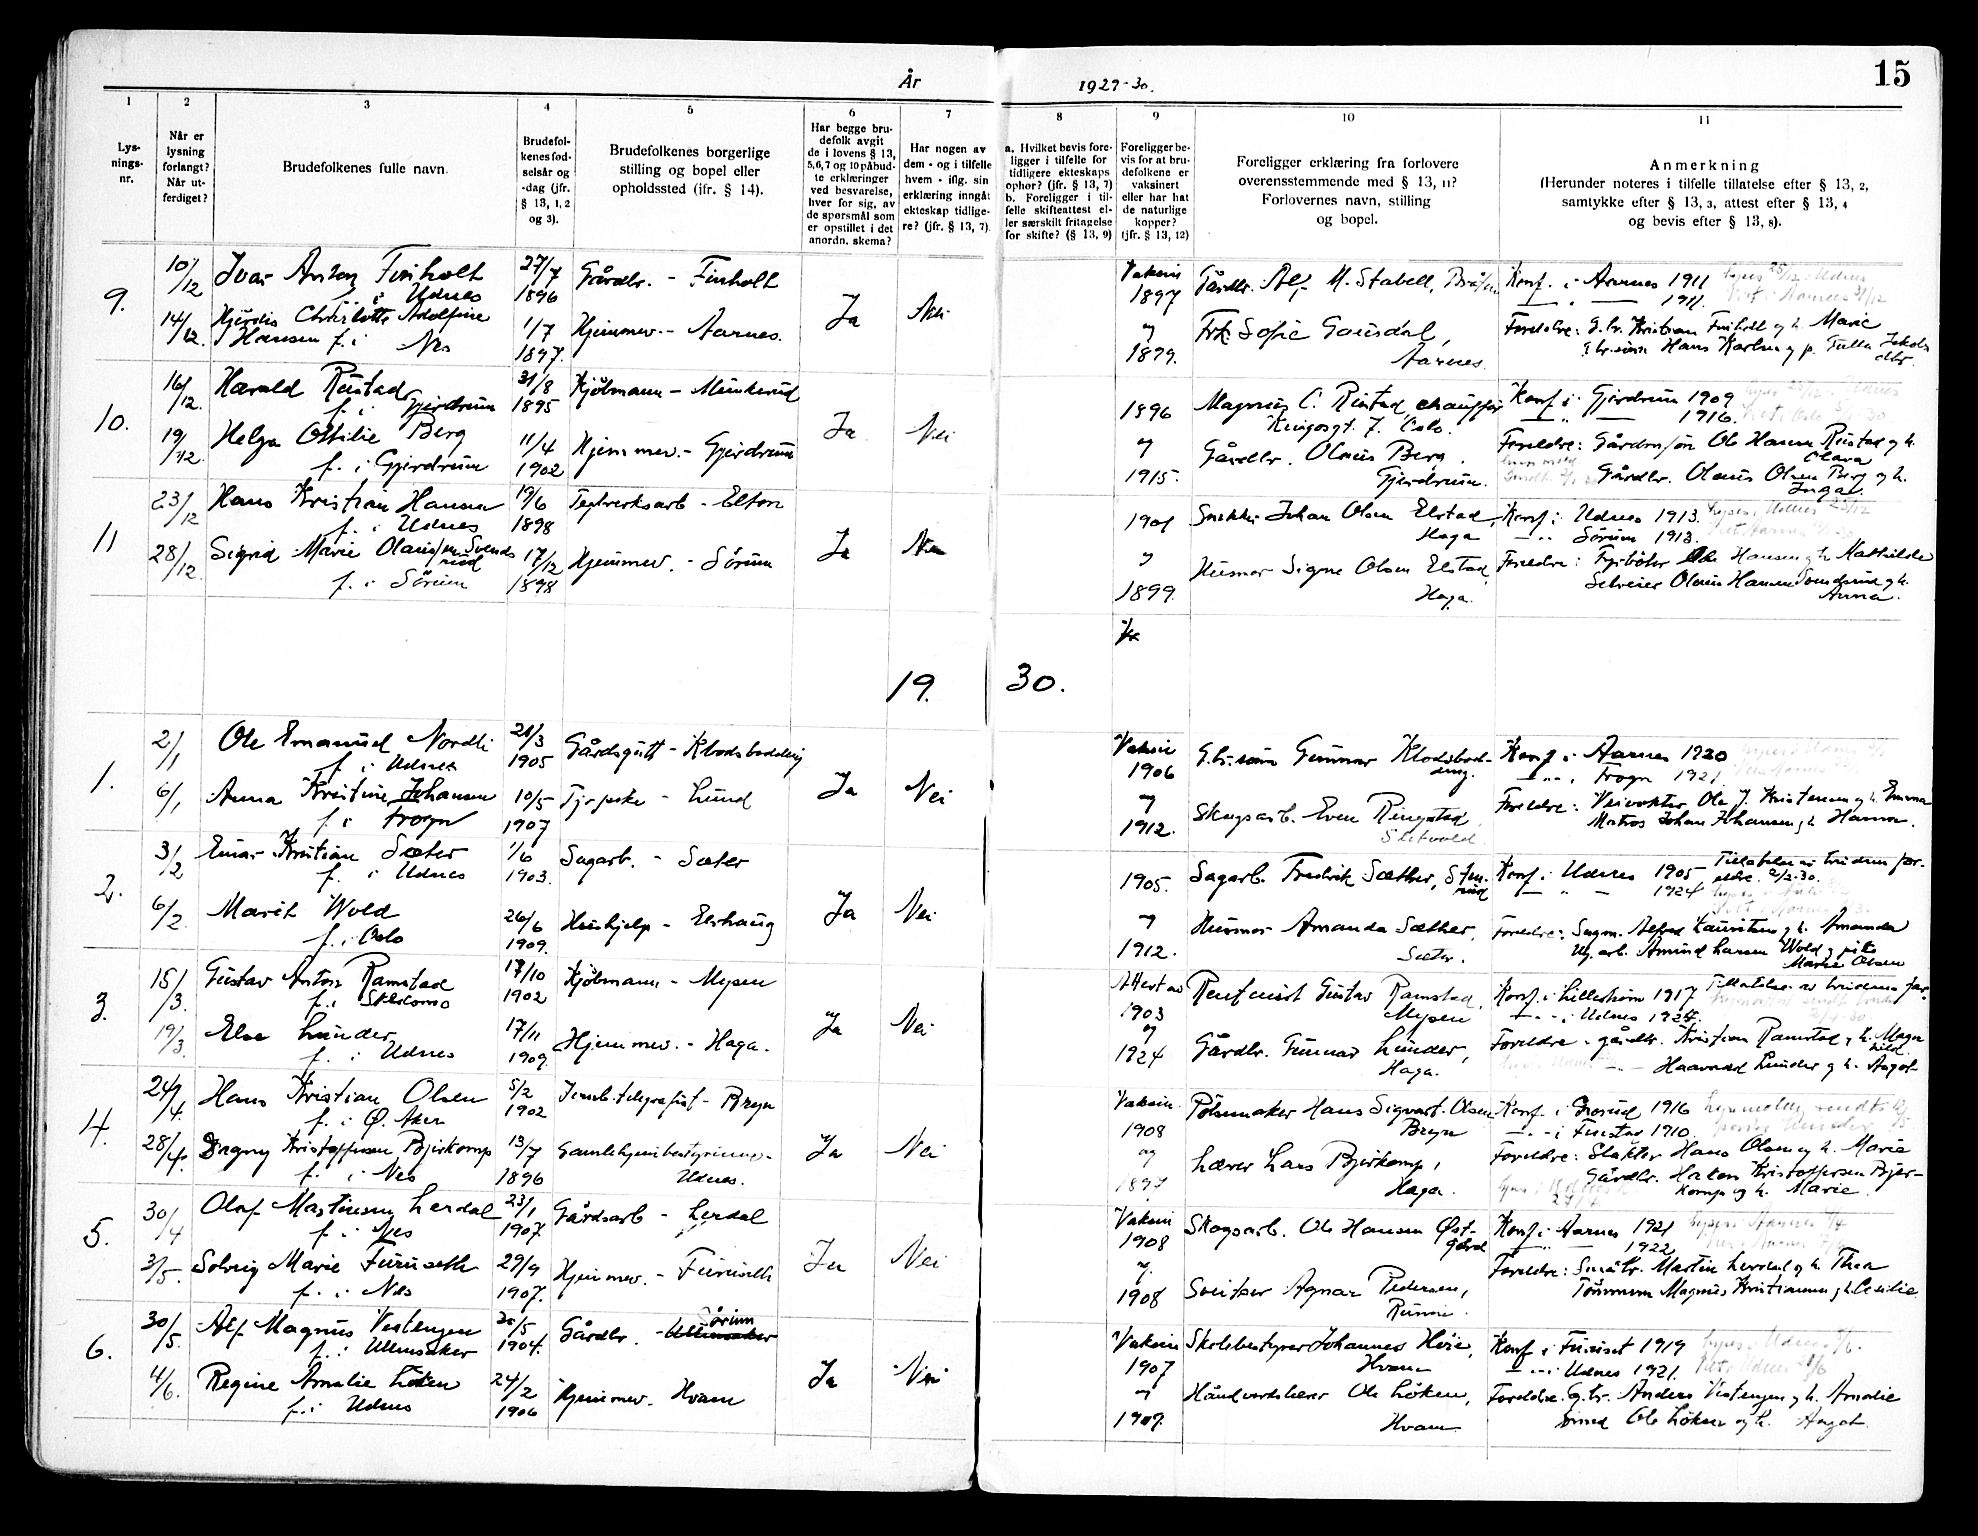 År
1929-30.
15
1
2
3
4
5
6
7
8
9
10
11
Lys-
nings-
nr.
Når er
lysning
forlangt?
Når ut-
ferdiget?
Brudefolkenes fulle navn.
Brudefol-
kenes fød-
selsår og
-dag (jfr.
§ 13, 1, 2
og 3).
Brudefolkenes borgerlige
stilling og bopel eller
opholdssted (jfr. § 14).
Har begge bru-
defolk avgit
de i lovens § 13,
5,6,7 og 10 påbud-
te erklæringer
ved besvarelse,
hver for sig, av
de spørsmål som
er opstillet i det
anordn. skema?
Har nogen av
dem - og i tilfelle
hvem - iflg. sin
erklæring inngåt
ekteskap tidlige-
re? (jfr. § 13, 7).
a. Hvilket bevis fore-
ligger i tilfelle for
tidligere ekteskaps
ophør? (jfr. § 13, 7)
b. Foreligger i til-
felle skifteattest el-
ler særskilt fritagelse
for skifte? (§ 13, 9)
Foreligger be-
vis for at bru-
defolkene er
vaksinert
eller har hat
de naturlige
kopper?
(jfr. § 13, 12)
Foreligger erklæring fra forlovere
overensstemmende med § 13, 11?
Forlovernes navn, stilling
og bopel.
Anmerkning
(Herunder noteres i tilfelle tillatelse efter § 13, 2,
samtykke efter § 13, 3, attest efter § 13, 4
og bevis efter § 13, 8).
9.
10/12
14/12.
Ivar Anton Finholt
f. i Udnes
Hjørdis Charlotte Adolfine
Hansen f. i Nes
27/7
1896
1/7
1897.
Gårdbr. - Finholt
Hjemmev. - Aarnes.
Ja
Nei
Vaksin
1897
og
1899.
Gårdbr. Alf M. Stabell,
Frk. Sofie Gausdal,
Aarnes.
Konf. i Aarnes 1911
1911.
Foreldre: G.br. Kristian Finholt og h. Marie
Hans Karlsen og
10.
16/12.
19/12.
Harald Rustad
f. i Gjerdrum
Helga Othilie Berg
f. i Gjerdrum
31/8
1895
11/4
1902
Kjølmann - Munkerud
Hjemmev. - Gjerdrum
Ja
Nei
1896
og
1915.
Magnus C. Rustad, chauffør
Kingosgt. 7. Oslo.
Gårdbr. Olaus Berg,
Gjerdrum.
Konf. i Gjerdrum 1909
1916.
Foreldre: Ole Hansen Rustad og h.
Olava
Gårdbr. Olaus Olsen Berg og h.
Inga.
11
23/12
28/12.
Hans Kristian Hansen
f. i Udnes
Sigrid Marie Olausen Svends
rud
f. i Sørum
19/6
1898
17/12
1898
Teglverksarb - Elton
Hjemmev. - Sørum
Ja
Nei
1901
og
1899.
Snekker Johan Olsen Elstad,
Haga
Husmor Signe Olsen Elstad,
Haga.
Konf. i Udnes 1913.
Sørum 1913.
Foreldre: Fyrbøter Ole Hansen og h. Mathilde
Selveier Olaus Hansen Svendsrud og h.
Anna.
19. 30.
1.
2/1
6/1
Ole Emanuel Nordli
f. i Udnes
Anna Kristine Johansen
f. i Frogn
21/3
1905
10/5
1907
Gårdsgutt - Klodsbødding
Tjepike - Lund
Ja
Nei
Vaksin
1906
og
1912.
G.br.sønn Gunnar Klodsbød-
ding.
Skogsarb. Even Ringstad,
Slitvold
Konf. i Aarnes 1920
Frogn 1921
Foreldre: Veivokter Ole J. Kristensen og h. Emma
Matros Johan Johansen og h. Hanna.
2.
3/2
6/2
Einar Kristian Sæter
f. i Udnes
Marit Wold
f. i Oslo
1/6
1903.
26/6
1909.
Sagarb. - Sæter
Hushjelp - Elshaug
Ja
Nei
1905.
og
1912.
Sagarb. Fredrik Sæther, Sten-
rud
Husmor Amanda Sæther,
Sæter.
Konf. i Udnes 1905
1924
Tillatelse av brudens for-
eldre. 2/2-30.
Foreldre: Sagm. Alfred Lauritsen og h. Amanda
Amund Larsen Wold og pike
Marie Olsen
3.
15/3.
19/3.
Gustav Anton Ramstad
f. i Skedsmo
Else Lunder
f. i Udnes
17/10
1902
17/11
1909.
Kjølmann - Mysen
Hjemmev. - Haga.
Ja
Nei
Attest av
1903
og
1924
Rentenist Gustav Ramstad,
Mysen
Gårdbr. Gunnar Lunder,
Haga.
Konf. i Lillestrøm 1917
i Udnes 1924.
Tillatelse av brudens for.
Foreldre - gårdbr. Kristian Ramstad og h. Magn
hild.
Haavard Lunder og h. Aagot
4.
24/4.
28/4.
Hans Kristian Olsen
f. i Ø. Aker
Dagny Kristoffersen Bjerkomp
f. i Nes
5/2
1902
13/7
1896
Jernb.telegrafist - Bryn
Gamlehjembestyrinne -
Udnes.
Ja
Nei
Vaksin.
1908
og
1897
Pølsemaker Hans Sigvart Olsen
Bryn
Lærer Lars Bjerkomp,
Haga.
Konf. i Grorud 1916
i Finstad 1910.
Foreldre: Slakter Hans Olsen og h. Marie
Gårdbr. Haken Kristoffersen Bjer-
komp og h. Marie.
5.
30/4
3/5.
Olaf Martinsen Lerdal
f. i Nes
Solveig Marie Furuseth
f. i Nes
23/1
1907.
29/9
1907.
Gårdsarb - Lerdal
Hjemmev. - Furuseth
Ja
Nei
Vaksin
1908
og.
1908
Skogsarb. Ole Hansen Øst-
gård
Sveitser Agnar Pedersen,
Konf. i Aarnes 1921
1922
Foreldre: Småbr. Martin Lerdal og h. Thea
Tømmerm Magnus Kristiansen og h. Cecilie.
6.
30/5.
4/6.
Alf Magnus Vestengen
f. i Ullensaker
Regine Amalie Løken
f. i Udnes
20/5
1904.
24/2
1906
Sørum
Gårdbr. - Ullensaker
Hjemmev. Hvam
Ja
Nei
Vaksin
1907
og
1907.
Skolebestyrer Johannes Høie,
Hvam
Håndverkslærer Ole Løken,
Hvam
Konf. i Furuset 1919
i Udnes 1921.
Foreldre. G.br. Anders Vestengen og h. Amalie
Smed Ole Løken og h. Aagot.